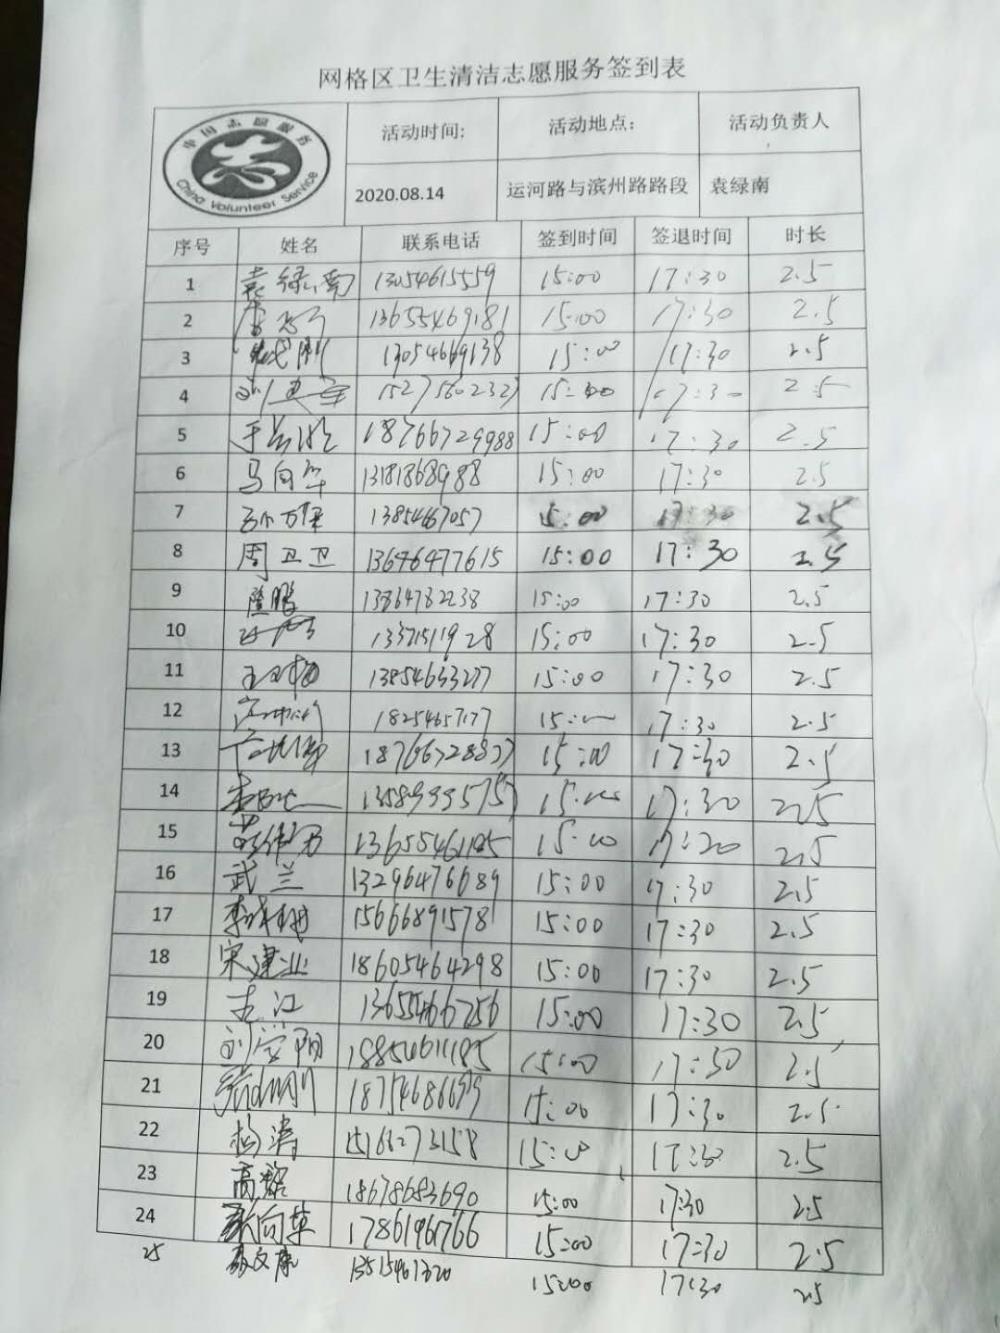 网格区卫生清洁志愿服务签到表
中国志愿服务者
China Volunteer Service
活动时间: 活动地点: 活动负责人
2020.08.14 运河路与滨州路路段 袁绿南
序号 姓名 联系电话 签到时间 签退时间 时长
1 袁绿南 13054615559 15:00 17:30 2.5
2 13655469181 15:00 17:30 2.5
3 13054669138 15:00 17:30 2.5
4 15:00 17:30 2.5
5 18766729988 15:00 17:30 2.5
6 马向华 13181868988 15:00 17:30 2.5
7 13854467057 15:00 17:30 2.5
8 周卫卫 13646477615 15:00 17:30 2.5
9 隆鹏 13864782238 15:00 17:30 2.5
10 13371511928 15:00 17:30 2.5
11 13854633277 15:00 17:30 2.5
12 18254657177 15:00 17:30 2.5
13 15:00 17:30 2.5
14 17:30 2.5
15 17:20 2.5
16 武兰 13296476689 15:00 17:30 2.5
17 15666891578 15:00 17:30 2.5
18 宋建业 18605464298 15:00 17:30 2.5
19 13655466756 15:00 17:30 2.5
20 刘学阳 15:00 17:30 2.5
21 18754686699 15:00 17:30 2.5
22 杨涛 15163273158 15:00 17:30 2.5
23 高铭 18678683690 15:00 17:30 2.5
24 17861961766 15:00 17:30 2.5
25 15:00 17:30 2.5